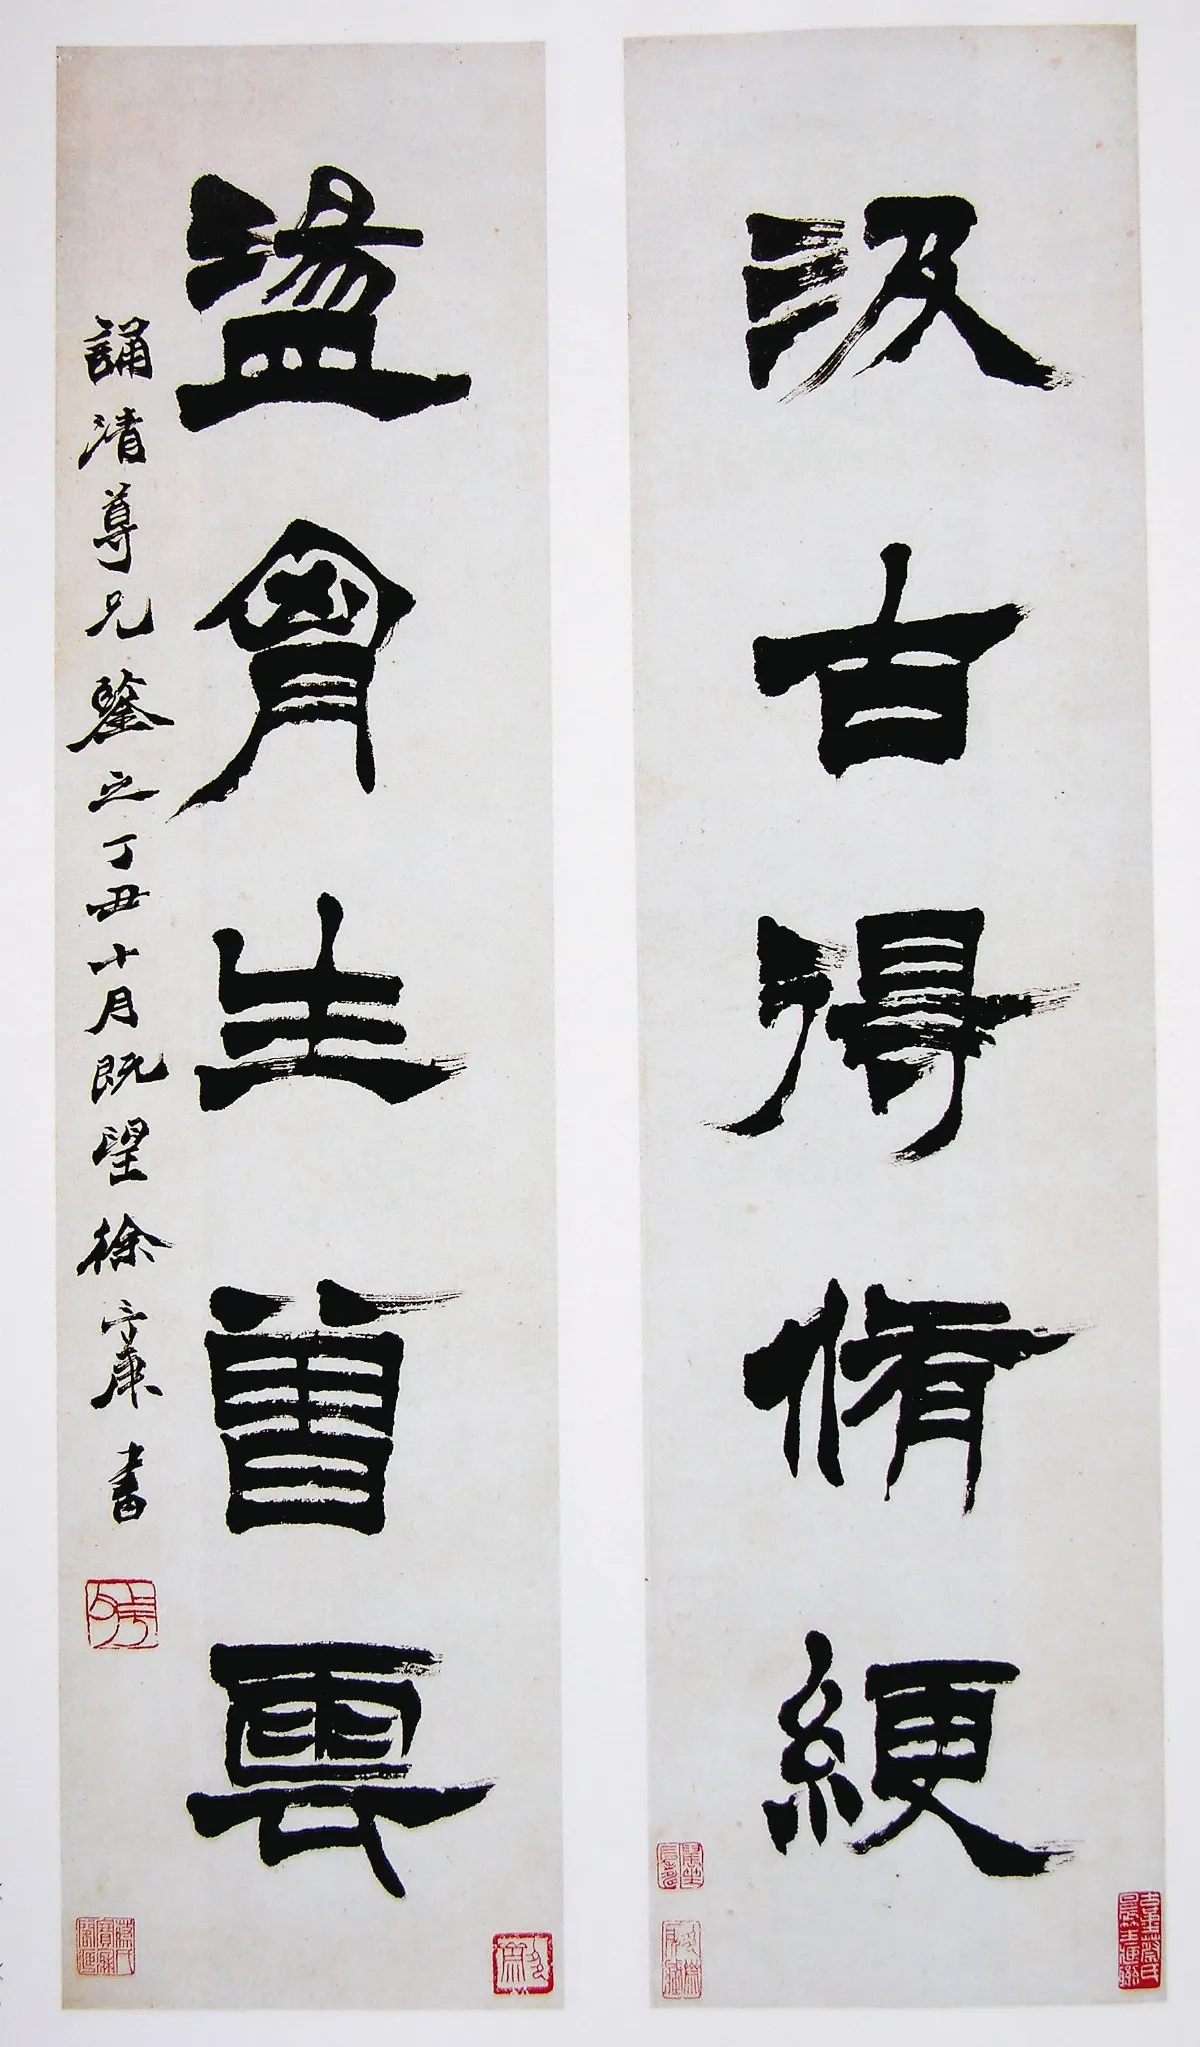 汲古得脩綆
盪胷生曾雲
誦清尊兄鑒之丁丑十月既望徐三庚書